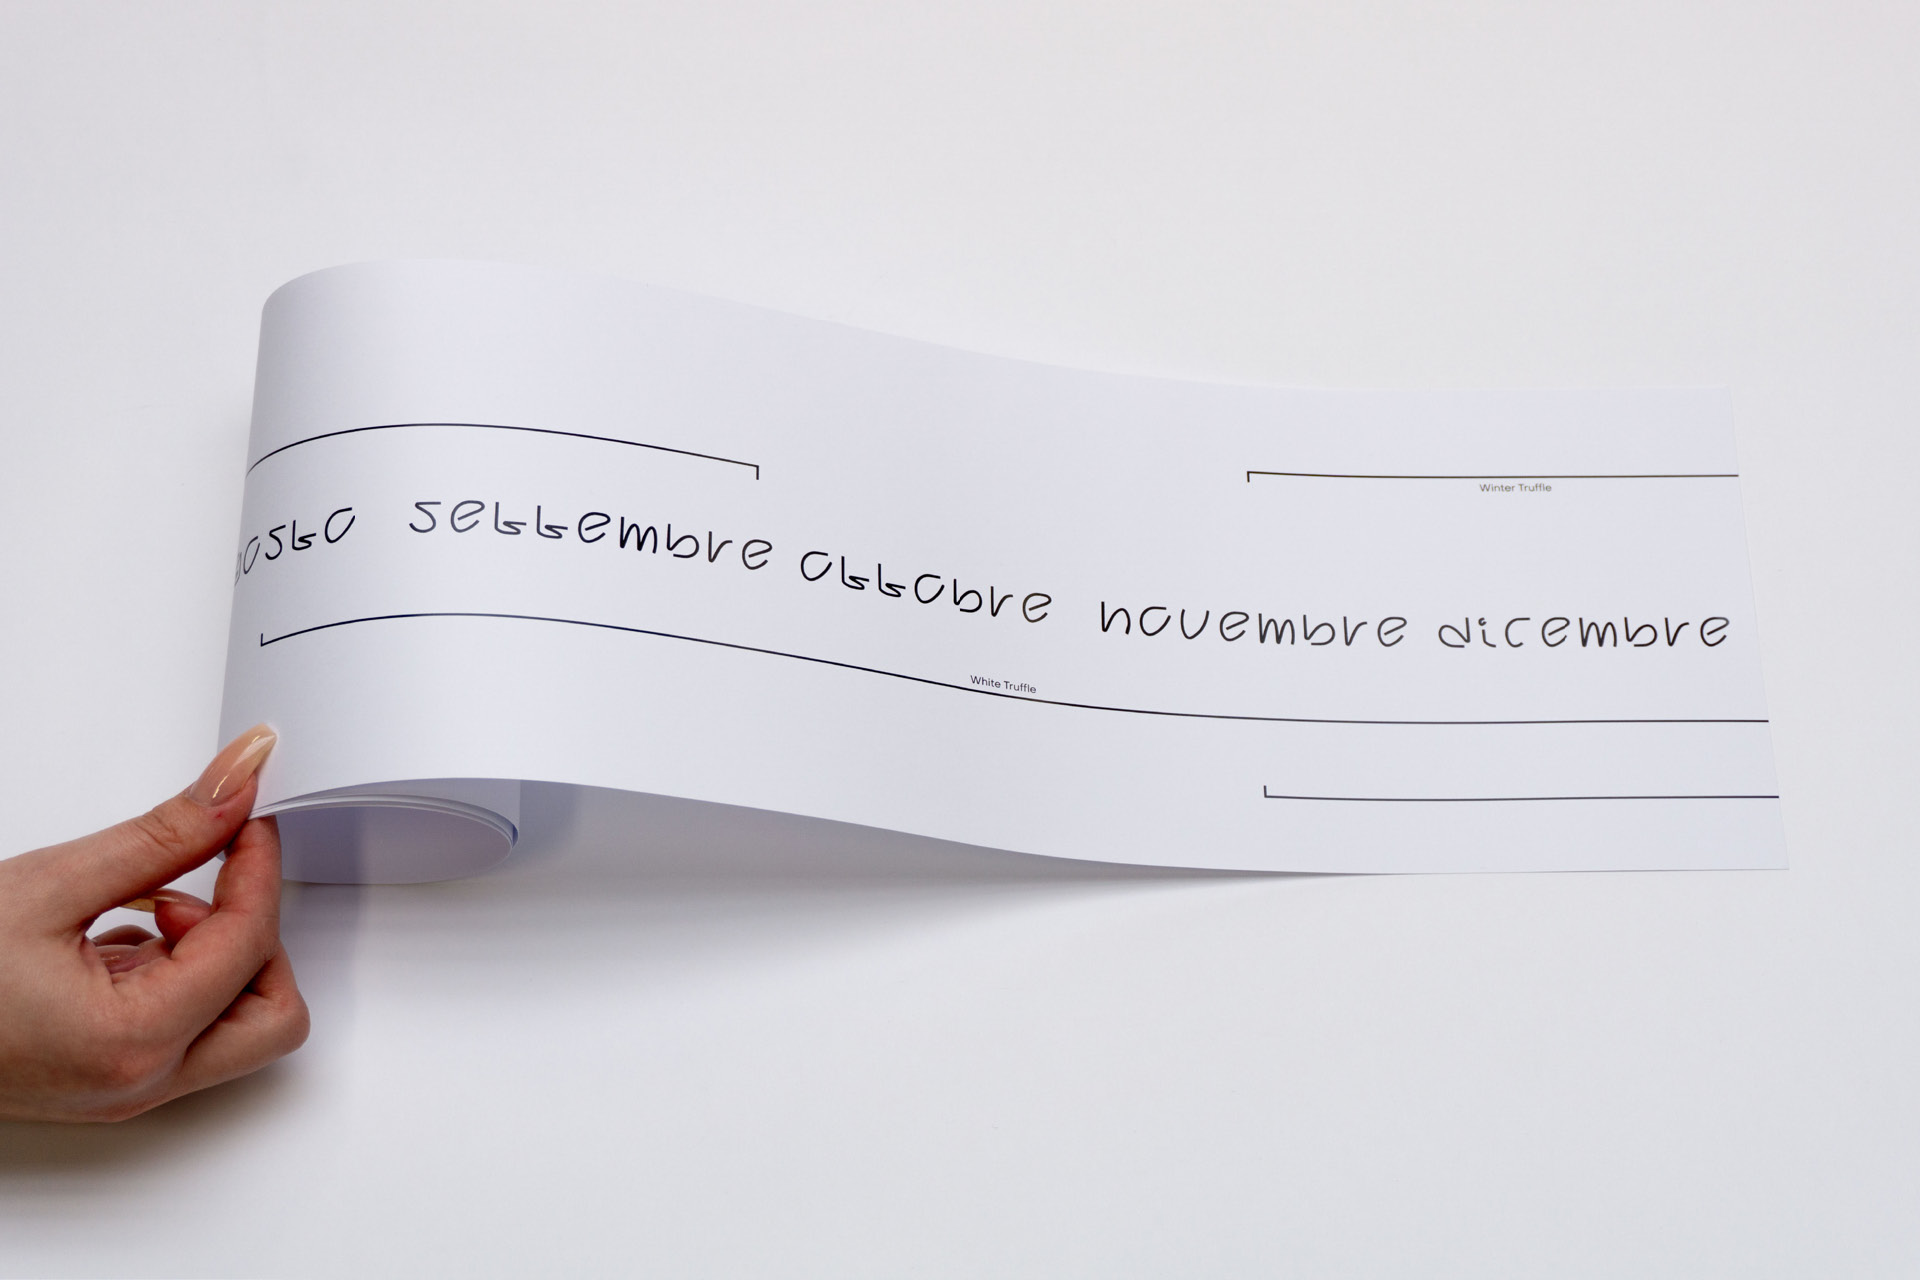 Winter Truffle
osto settembre ottobre novembre dicembre
White Truffle